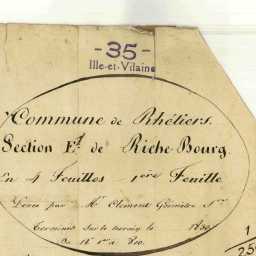 - 35 -
Ille-et-Vilaine
Commune de Rhétiers.
Section E. de Riche-Bourg.
En 4 Feuilles 1ère Feuille
Levée par Mr Clément Géomètre
Terminée sur le terrain le
1